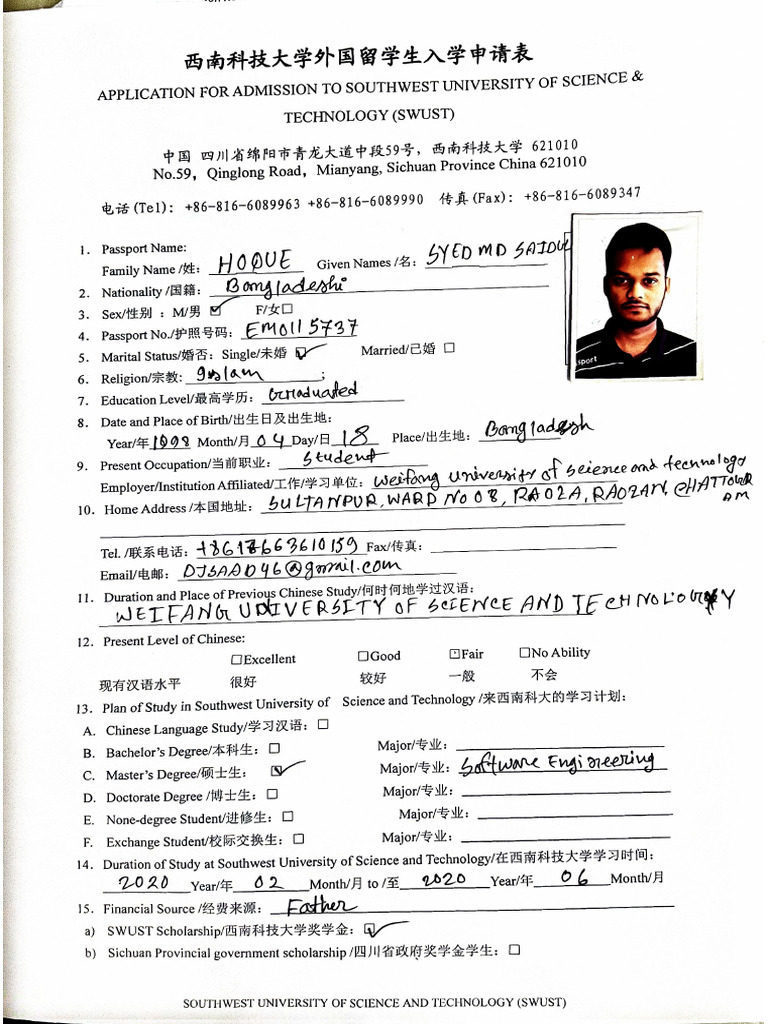 西南科技大学外国留学生入学申请表
APPLICATION FOR ADMISSION TO SOUTHWEST UNIVERSITY OF SCIENCE &
TECHNOLOGY (SWUST)
中国 四川省绵阳市青龙大道中段59号, 西南科技大学 621010
No.59, Qinglong Road, Mianyang, Sichuan Province China 621010
电话(Tel): +86-816-6089963 +86-816-6089990 传真(Fax): +86-816-6089347
1. Passport Name:
Family Name /姓: HOQUE Given Names /名: SYED MD SAIDUL
2. Nationality /国籍: Bangladeshi
3. Sex/性别 : M/男 ☑ F/女☐
4. Passport No./护照号码: EM0115737
5. Marital Status/婚否: Single/未婚 ☑ Married/已婚 ☐
6. Religion/宗教: Islam ;
7. Education Level/最高学历: Graduated
8. Date and Place of Birth/出生日及出生地:
Year/年 1998 Month/月 04 Day/日 18 Place/出生地: Bangladesh
9. Present Occupation/当前职业: Student
Employer/Institution Affiliated/工作/学习单位: Weifang University of Science and technology
10. Home Address /本国地址: SULTANPUR, WARD NO 08, RAOZA, RAOZAN, CHATTOGRAM
Tel. /联系电话: +8617663610159 Fax/传真:
Email/电邮: DJSAAD46@gmail.com
11. Duration and Place of Previous Chinese Study/何时何地学过汉语:
WEIFANG UNIVERSITY OF SCIENCE AND TECHNOLOGY
12. Present Level of Chinese:
☐Excellent ☐Good ☑Fair ☐No Ability
现有汉语水平 很好 较好 一般 不会
13. Plan of Study in Southwest University of Science and Technology /来西南科大的学习计划:
A. Chinese Language Study/学习汉语: ☐
B. Bachelor's Degree/本科生: ☐ Major/专业:
C. Master's Degree/硕士生: ☑ Major/专业: Software Engineering
D. Doctorate Degree /博士生: ☐ Major/专业:
E. None-degree Student/进修生: ☐ Major/专业:
F. Exchange Student/校际交换生: ☐ Major/专业:
14. Duration of Study at Southwest University of Science and Technology/在西南科技大学学习时间:
2020 Year/年 02 Month/月 to /至 2020 Year/年 06 Month/月
15. Financial Source /经费来源: Father
a) SWUST Scholarship/西南科技大学奖学金: ☑
b) Sichuan Provincial government scholarship /四川省政府奖学金学生: ☐
SOUTHWEST UNIVERSITY OF SCIENCE AND TECHNOLOGY (SWUST)